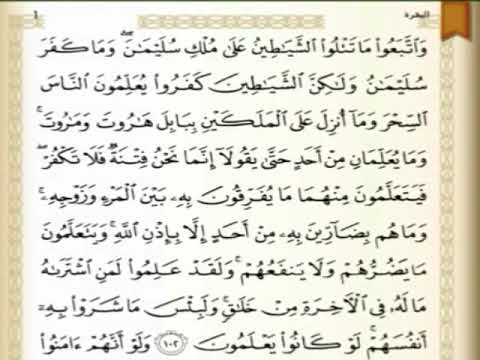 البقرة
1
وَاتَّبَعُوا مَا تَتْلُوا الشَّيَاطِينُ عَلَىٰ مُلْكِ سُلَيْمَٰنَ ۖ وَمَا كَفَرَ
سُلَيْمَٰنُ وَلَٰكِنَّ الشَّيَاطِينَ كَفَرُوا يُعَلِّمُونَ النَّاسَ
السِّحْرَ وَمَا أُنزِلَ عَلَى الْمَلَكَيْنِ بِبَابِلَ هَٰرُوتَ وَمَٰرُوتَ ۚ
وَمَا يُعَلِّمَانِ مِنْ أَحَدٍ حَتَّىٰ يَقُولَا إِنَّمَا نَحْنُ فِتْنَةٌ فَلَا تَكْفُرْ ۖ
فَيَتَعَلَّمُونَ مِنْهُمَا مَا يُفَرِّقُونَ بِهِ بَيْنَ الْمَرْءِ وَزَوْجِهِ ۚ
وَمَا هُم بِضَارِّينَ بِهِ مِنْ أَحَدٍ إِلَّا بِإِذْنِ اللَّهِ ۚ وَيَتَعَلَّمُونَ
مَا يَضُرُّهُمْ وَلَا يَنفَعُهُمْ ۚ وَلَقَدْ عَلِمُوا لَمَنِ اشْتَرَىٰهُ
مَا لَهُ فِي الْآخِرَةِ مِنْ خَلَٰقٍ ۚ وَلَبِئْسَ مَا شَرَوْا بِهِ
أَنفُسَهُمْ ۚ لَوْ كَانُوا يَعْلَمُونَ ١٠٢ وَلَوْ أَنَّهُمْ ءَامَنُوا